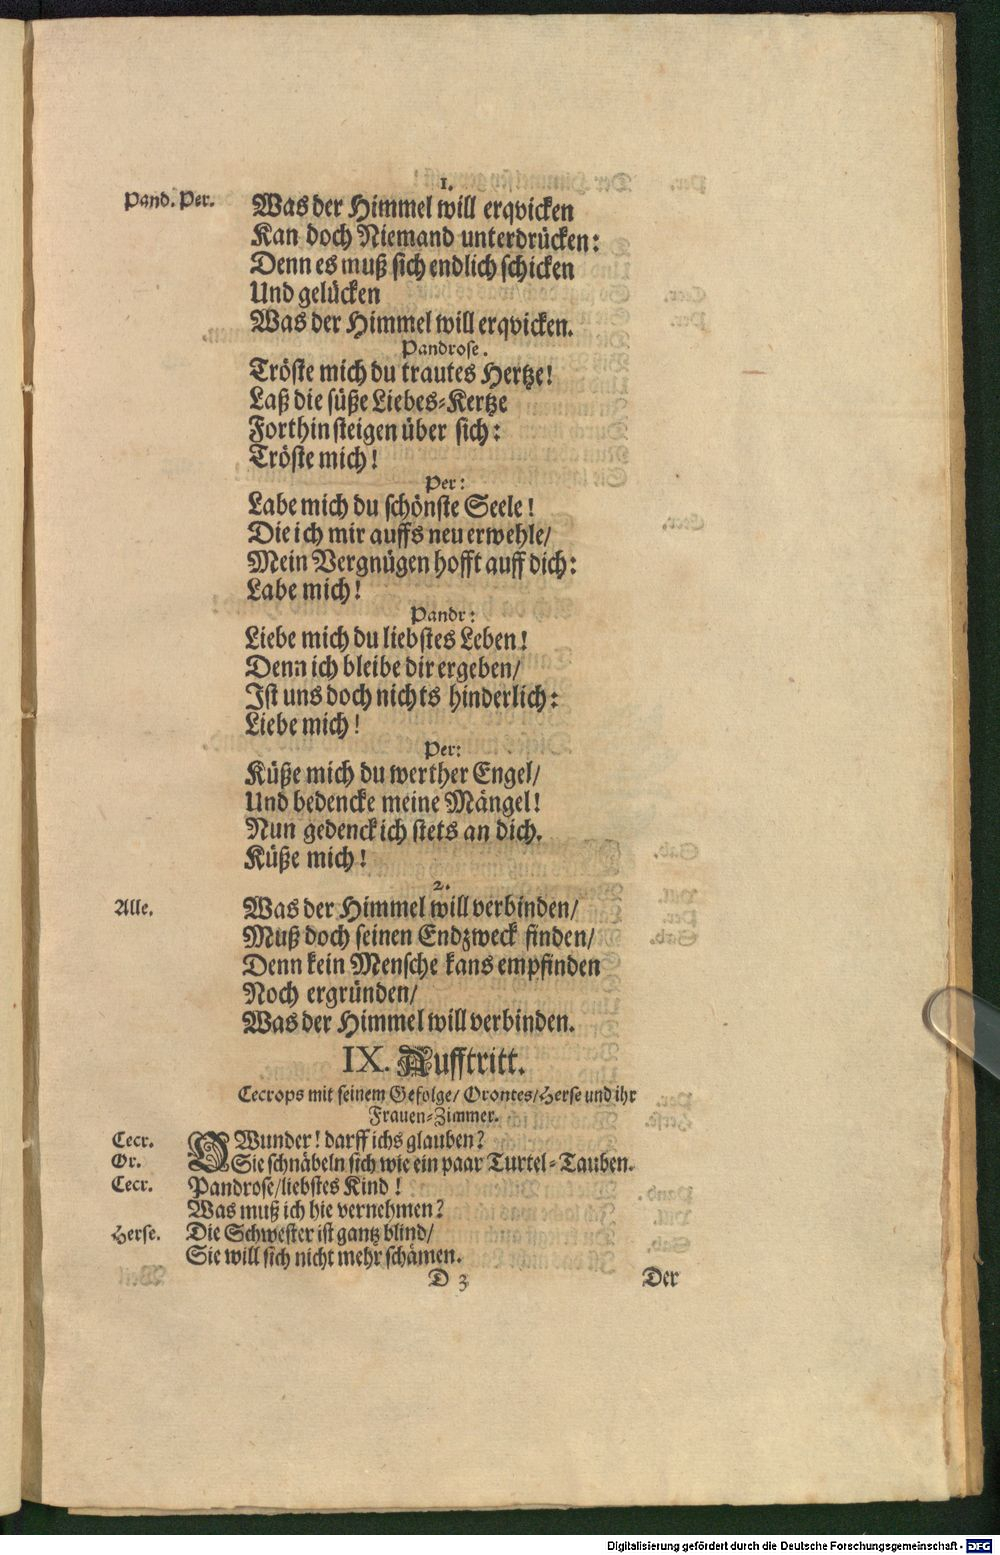 1.
Pand. Per. Was der Himmel will erqvicken
Kan doch Niemand unterdrücken:
Denn es muß sich endlich schicken
Und gelücken
Was der Himmel will erqvicken.
Pandrose.
Tröste mich du trautes Hertze!
Laß die süße Liebes-Kertze
Forthin steigen über sich:
Tröste mich!
Per:
Labe mich du schönste Seele!
Die ich mir auffs neu erwehle/
Mein Vergnügen hofft auff dich:
Labe mich!
Pandr:
Liebe mich du liebstes Leben!
Denn ich bleibe dir ergeben/
Ist uns doch nichts hinderlich:
Liebe mich!
Per:
Küße mich du werther Engel/
Und bedencke meine Mängel!
Nun gedenck ich stets an dich.
Küße mich!
2.
Alle. Was der Himmel will verbinden/
Muß doch seinen Endzweck finden/
Denn kein Mensche kans empfinden
Noch ergründen/
Was der Himmel will verbinden.
IX. Aufftritt.
Cecrops mit seinem Gefolge/ Orontes/ Herse und ihr
Frauen-Zimmer.
Cecr. O Wunder! darff ichs glauben?
Or. Sie schnäbeln sich wie ein paar Turtel-Tauben.
Cecr. Pandrose/ liebstes Kind!
Was muß ich hie vernehmen?
Herse. Die Schwester ist gantz blind/
Sie will sich nicht mehr schämen.
D 3 Der
Digitalisierung gefördert durch die Deutsche Forschungsgemeinschaft - DFG